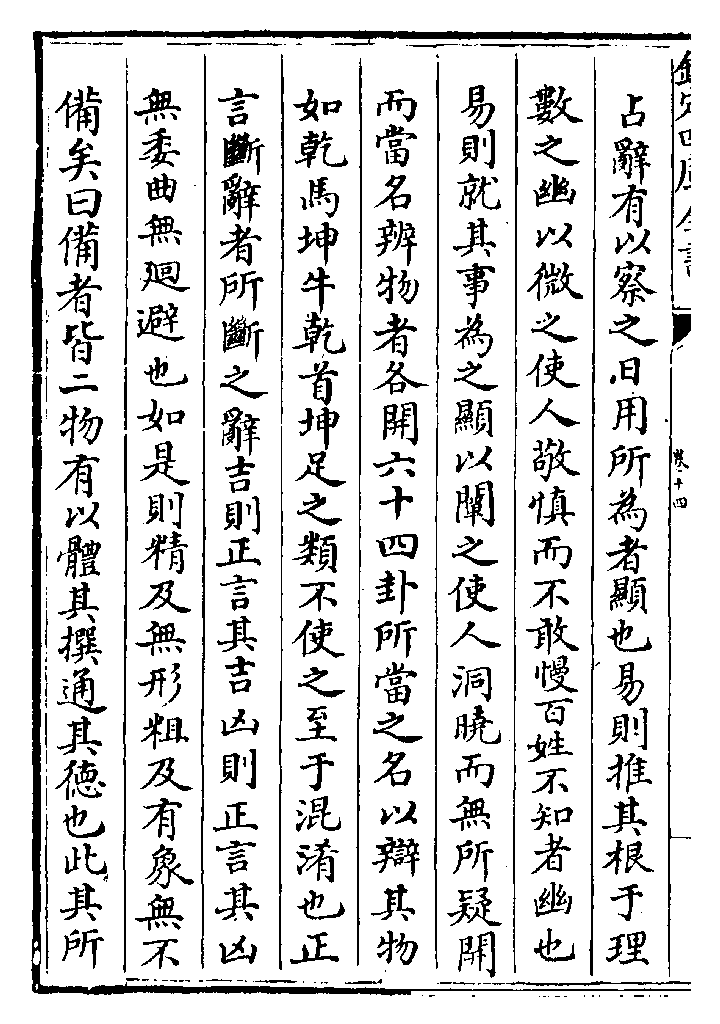 欽定四庫全書
卷十四
占辭有以察之日用所為者顯也易則推其根于理
數之幽以微之使人敬慎而不敢慢百姓不知者幽也
易則就其事為之顯以闡之使人洞曉而無所疑開
而當名辨物者各開六十四卦所當之名以辯其物
如乾馬坤牛乾首坤足之類不使之至于混淆也正
言斷辭者所斷之辭吉則正言其吉凶則正言其凶
無委曲無廻避也如是則精及無形粗及有象無不
備矣曰備者皆二物有以體其撰通其德也此其所